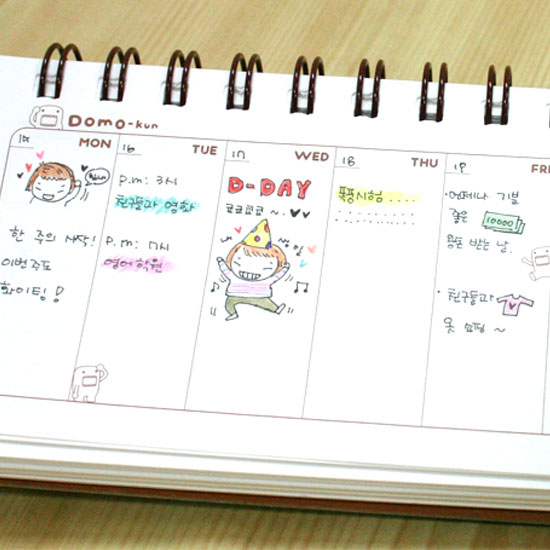 Domo-kun
MON
TUE
WED
THU
FRI
15
한 주의 시작!
이번주도
화이팅!
16
P.m: 3시
친구들과 영화
P.m: 7시
영어학원
17
D-DAY
쿄쿄쿄쿄~
내 생일
18
폭풍시험....
19
·언제나 기분
좋은 10000
용돈 받는 날.
·친구들과
옷 쇼핑~